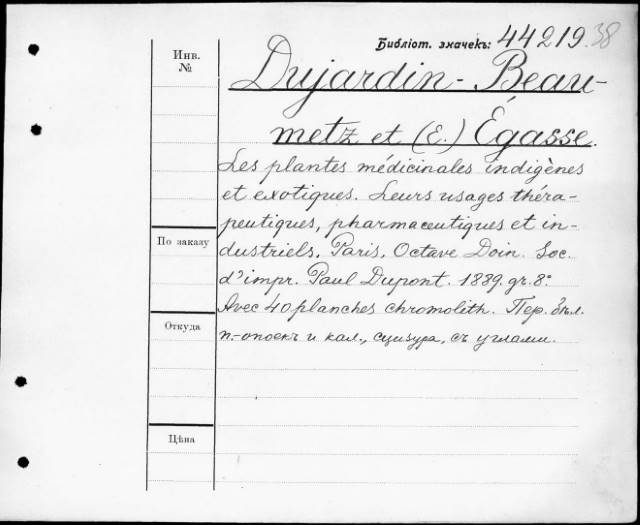 Библіот. значекъ: 44219 38
Инв.
№
Dujardin-Beau-
metz et (E.) Égasse.
Les plantes médicinales indigènes
et exotiques. Leurs usages théra-
peutiques, pharmaceutiques et in-
dustriels. Paris, Octave Doin. Soc.
По заказу
d'impr. Paul Dupont. 1889. gr. 8º
Avec 40 planches chromolith. Пер. бѣл.
Откуда
п.-опоек и кал., сцизура, съ углами.
Цѣна